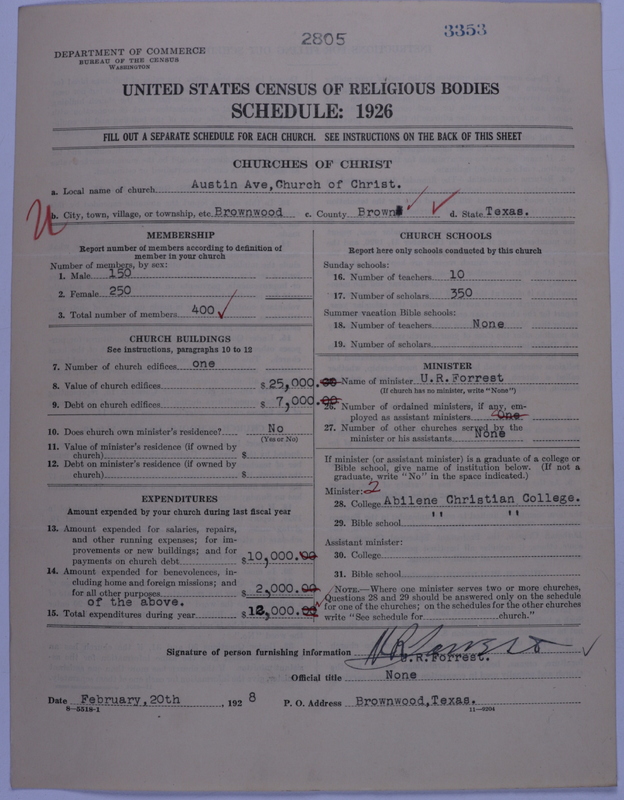 2805
3353
DEPARTMENT OF COMMERCE
BUREAU OF THE CENSUS
WASHINGTON
UNITED STATES CENSUS OF RELIGIOUS BODIES
SCHEDULE: 1926
FILL OUT A SEPARATE SCHEDULE FOR EACH CHURCH. SEE INSTRUCTIONS ON THE BACK OF THIS SHEET
CHURCHES OF CHRIST
a. Local name of church Austin Ave, Church of Christ.
b. City, town, village, or township, etc. Brownwood c. County Brown d. State Texas.
MEMBERSHIP
Report number of members according to definition of
member in your church
Number of members, by sex:
1. Male 150
2. Female 250
3. Total number of members 400
CHURCH BUILDINGS
See instructions, paragraphs 10 to 12
7. Number of church edifices one
8. Value of church edifices $25,000.00
9. Debt on church edifices $ 7,000.00
10. Does church own minister's residence? No
(Yes or No)
11. Value of minister's residence (if owned by
church) $
12. Debt on minister's residence (if owned by
church) $
EXPENDITURES
Amount expended by your church during last fiscal year
13. Amount expended for salaries, repairs,
and other running expenses; for im-
provements or new buildings; and for
payments on church debt $10,000.00
14. Amount expended for benevolences, in-
cluding home and foreign missions; and
for all other purposes $ 2,000.00
of the above.
15. Total expenditures during year $12,000.00
CHURCH SCHOOLS
Report here only schools conducted by this church
Sunday schools:
16. Number of teachers 10
17. Number of scholars 350
Summer vacation Bible schools:
18. Number of teachers None
19. Number of scholars
MINISTER
Name of minister U.R.Forrest
(If church has no minister, write "None")
26. Number of ordained ministers, if any, em-
ployed as assistant ministers One
27. Number of other churches served by the
minister or his assistants None
If minister (or assistant minister) is a graduate of a college or
Bible school, give name of institution below. (If not a
graduate, write "No" in the space indicated.)
Minister: 2
28. College Abilene Christian College.
29. Bible school " "
Assistant minister:
30. College
31. Bible school
NOTE.—Where one minister serves two or more churches,
Questions 28 and 29 should be answered only on the schedule
for one of the churches; on the schedules for the other churches
write "See schedule for church."
Signature of person furnishing information
U.R.Forrest.
Official title None
Date February, 20th , 1928 P. O. Address Brownwood, Texas.
8—5518-1
11—9204